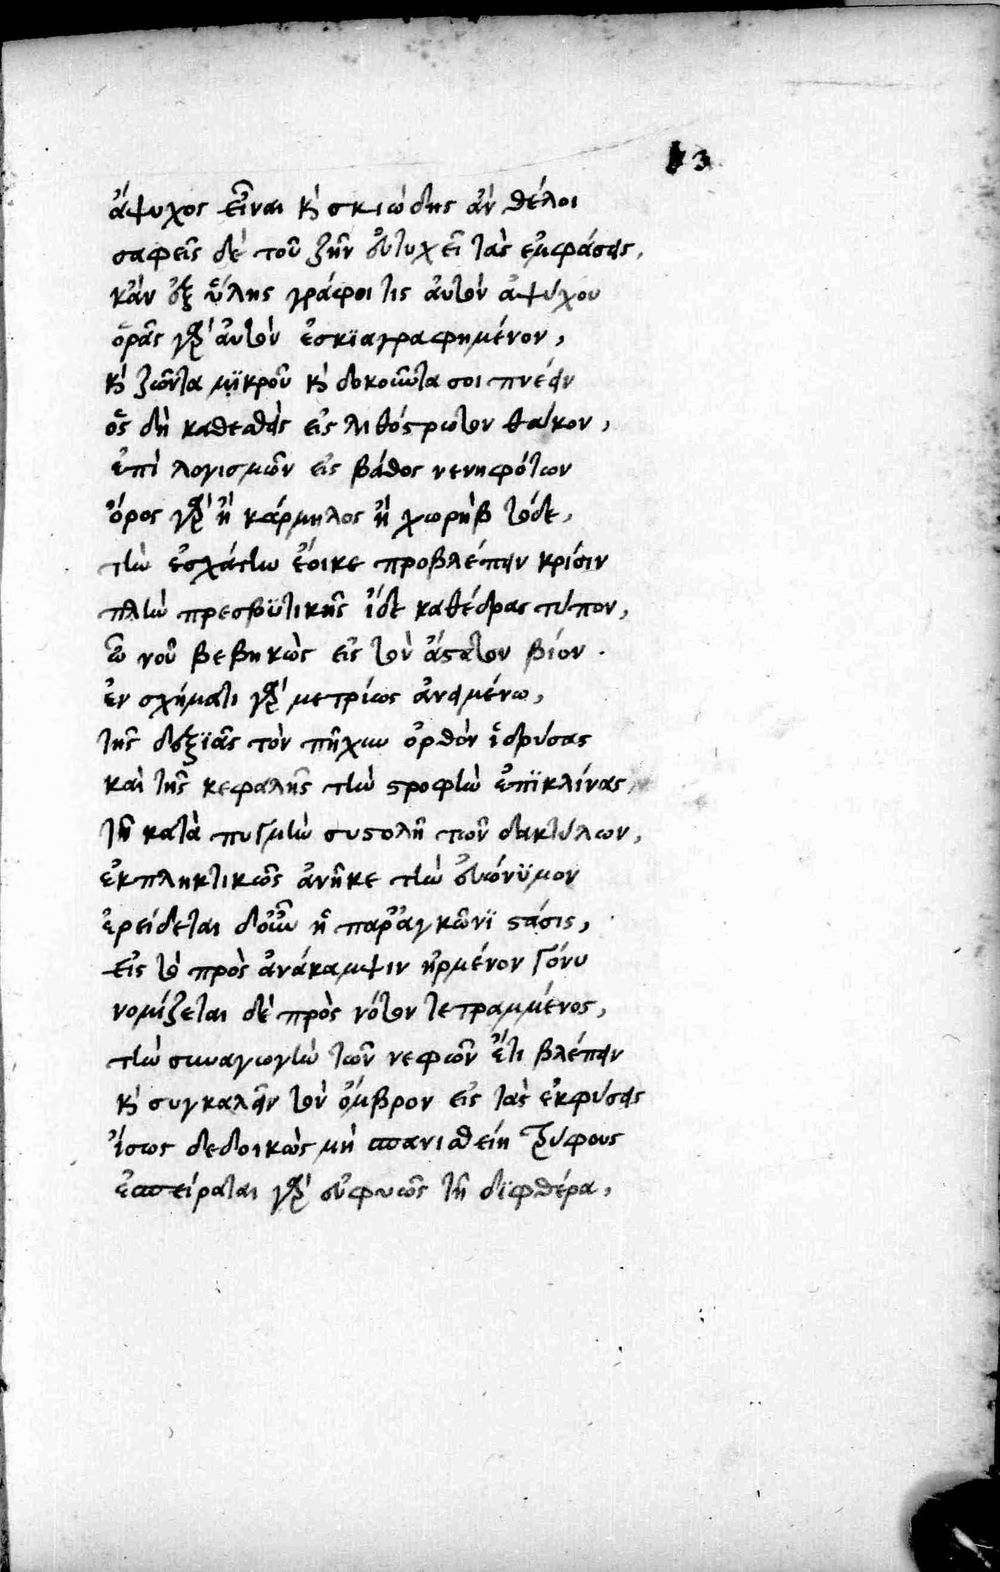 13
ἄψυχος εἶναι κὶ σκιώδης ἂν θέλοι
σαφεῖς δὲ τοῦ ζῆν εὐτυχεῖ τὰς ἐμφράσεις,
κἂν ἐξ ὕλης γράφοι τις αὐτὸν ἀψύχου
ὁρᾶς γὰρ αὐτὸν ἐσκϊαγραφημένον,
κὶ ζῶντα μϊκροῦ κὶ δοκοῦντα σοι πνέειν
ὃς δὴ καθεσθεὶς εἰς λιθόστρωτον θαῖκον,
ἐπὶ λογισμῶν εἰς βάθος νενηφότων
ὄρος γὰρ ἢ κάρμηλος ἢ χωρὴβ τόδε,
τὴν ἐσχάτην ἔοικε προβλέπειν κρίσιν
τὴν πρεσβϋτικῆς ἴδε καθέδρας τύπον,
ἐκ νοῦ βεβηκὼς εἰς τὸν ἄστατον βίον.
ἐν σχήματι γὰρ μετρίως ἀνειμένω,
τῆς δεξϊᾶς τὸν πῆχυν ὀρθὸν ἱδρύσας
καὶ τῆς κεφαλῆς τὴν στροφὴν ἐπϊκλίνας,
τῆ κατὰ πυγμὴν συστολῆ τῶν δακτύλων,
ἐκπληκτικῶς ἀνῆκε τὴν εὐώνϋμον
ἐρείδεται δ οὖν ἡ παρ ἀγκῶνϊ στάσις,
εἰς τὸ πρὸς ἀνάκαμψιν ἠρμένον γόνυ
νομίζεται δὲ πρὸς νότον τετραμμένος,
τὴν συναγωγὴν τῶν νεφῶν ἔτι βλέπειν
κὶ συγκαλεῖν τὸν ὄμβρον εἰς τὰς ἐκφύσεις
ἴσως δεδοικὼς μὴ σπανισθείη τρύφους
ἐσπείραται γὰρ εὐφυῶς τῆ δϊφθέρα,